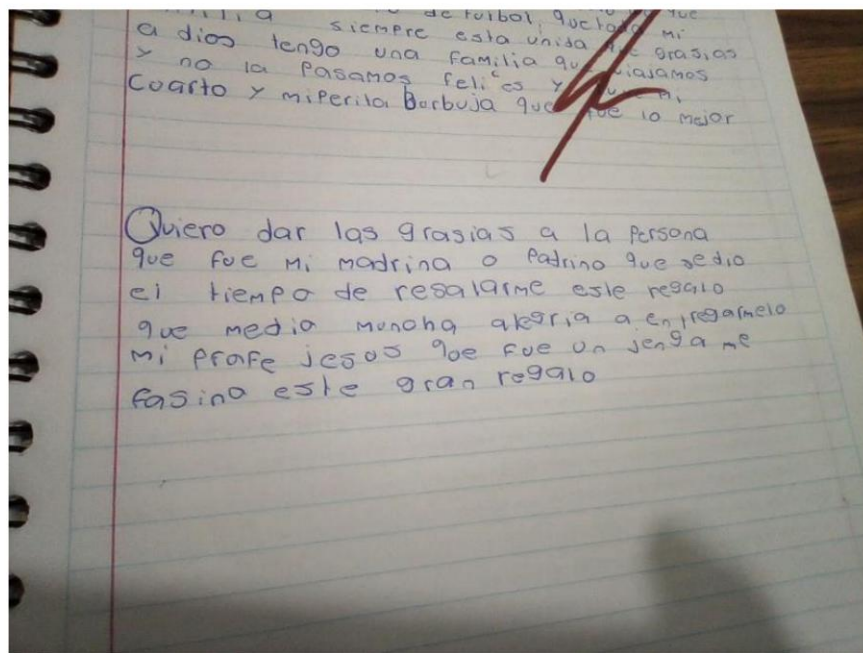 de futbol, que toda mi
siempre esta unida que grasias
a dios tengo una familia que viajamos
y no la pasamos felices y
Cuarto y miperita Burbuja que fue lo mejor
Quiero dar las grasias a la persona
que fue mi madrina o padrino que sedio
el tiempo de resalarme este regalo
que media muncha alegria a entregarmelo
mi profe jesus que fue un jenga me
fasina este gran regalo